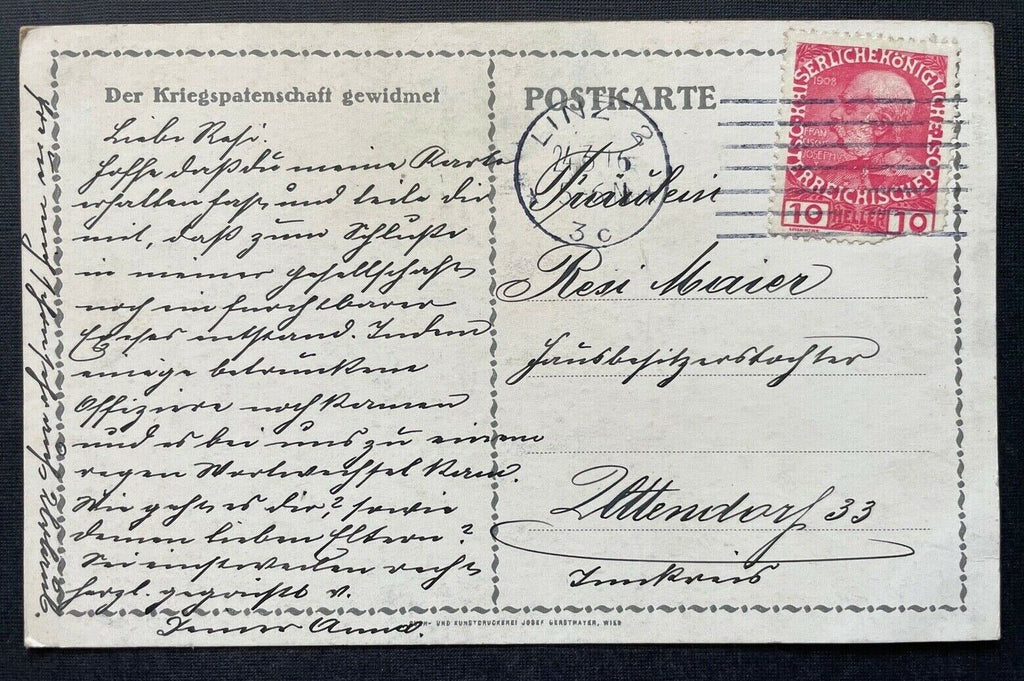 Der Kriegspatenschaft gewidmet
POSTKARTE
Liebe Resi.
Hoffe daß du meine Karte
erhalten hast und teile dir
mit, daß zum Schluße
in meiner Gesellschaft
noch ein furchtbarer
entstand. Indem
einige betrunkene
Offiziere noch kamen
und es bei uns zu einem
regen Wortwechsel kam.
Wie geht es dir, sowie
deinen lieben Eltern?
Sei einstweilen recht
herzl. gegrüßt v.
Anna.
LINZ 2
3c
KAISERLICHE KÖNIGLICHE ÖSTERREICHISCHE POST
1908
FRANZ JOSEPH I
10 HELLER 10
Fräulein
Resi Maier
Hausbesitzerstochter
Uttendorf 33
Innkreis
BUCH- UND KUNSTDRUCKEREI JOSEF GERSTMAYER, WIEN